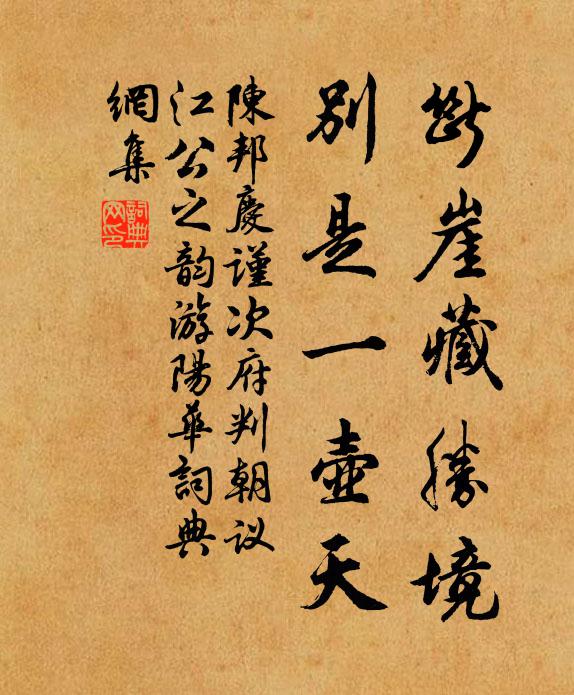 斷崖藏勝境
別是一壺天
陳邦慶謹次府判朝议
江公之韵游陽華詞典
網集
詞典網印